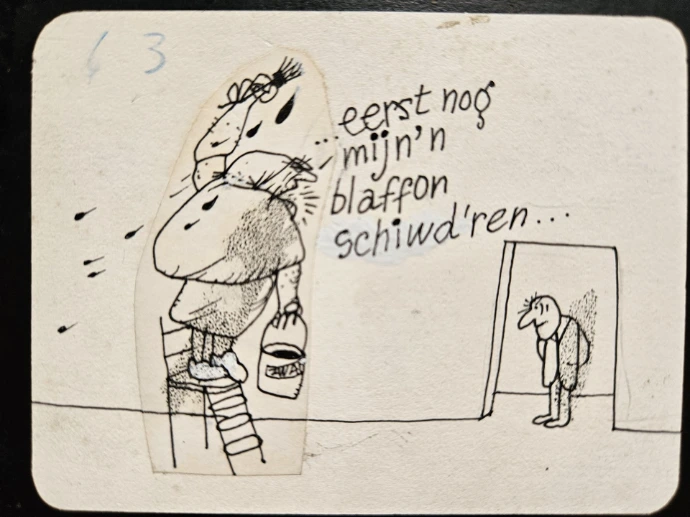 63
...eerst nog
mijn'n
blaffon
schiwd'ren...
ZWA